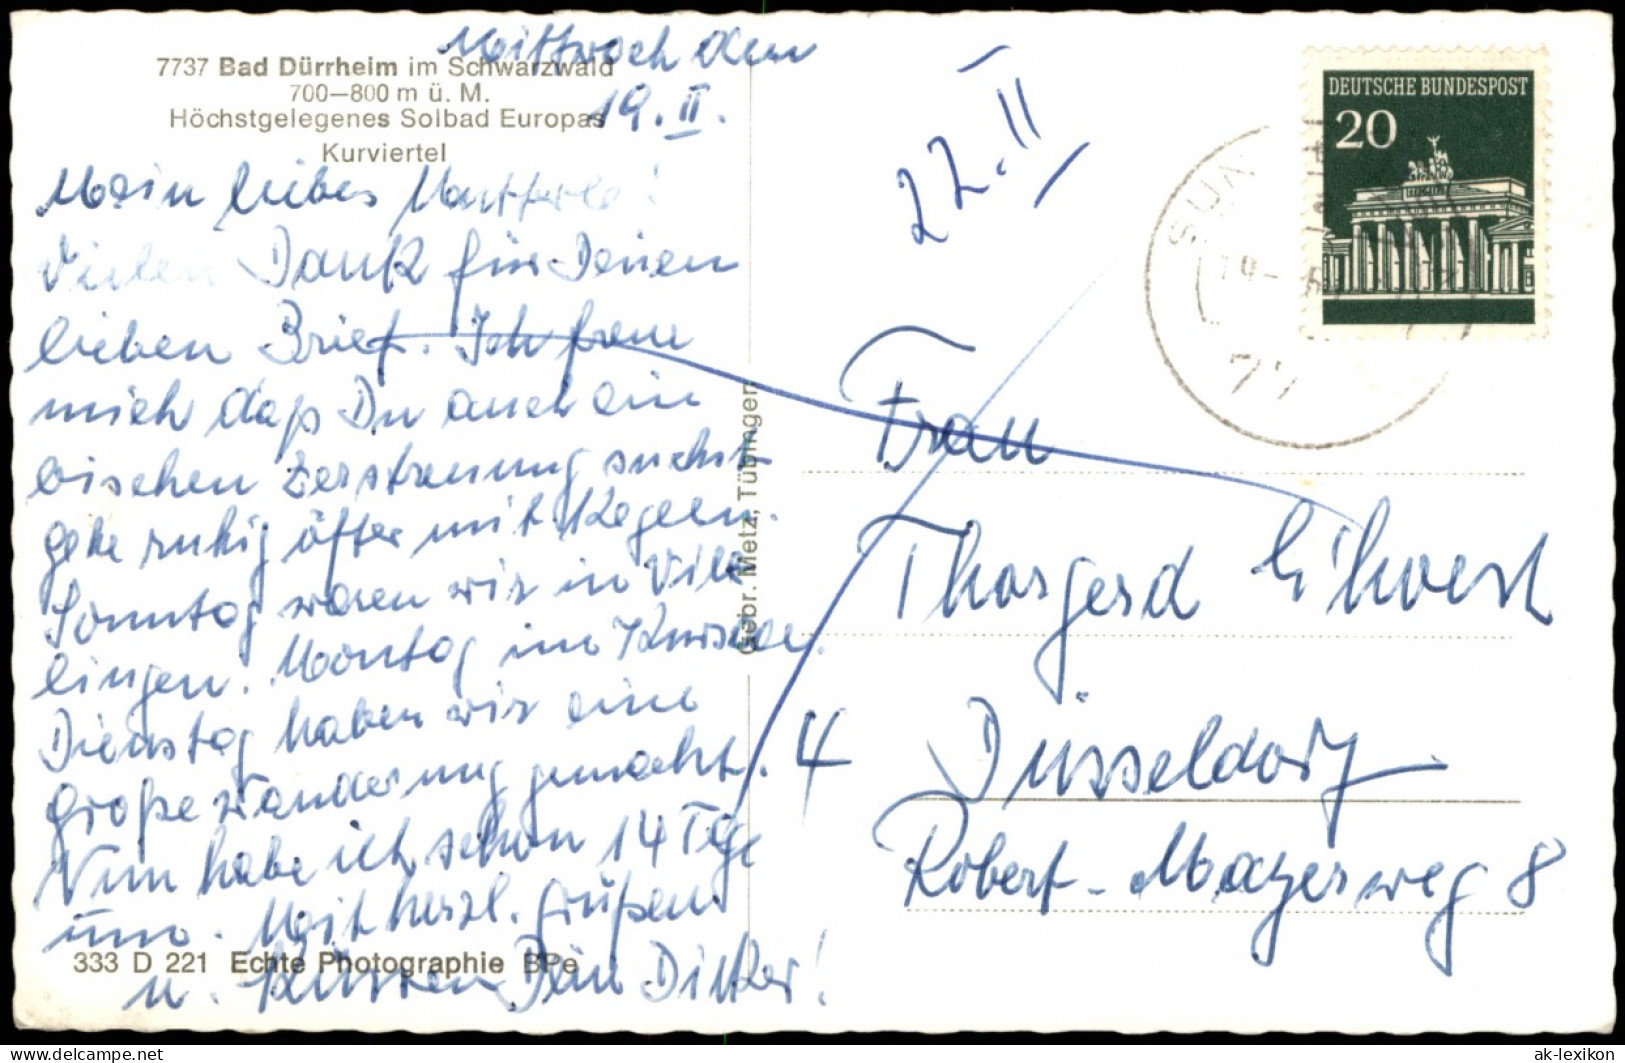 Mittwoch den
19.II.
7737 Bad Dürrheim im Schwarzwald
700—800 m ü. M.
Höchstgelegenes Solbad Europas
Kurviertel
Mein liebes Mutterle!
Vielen Dank für Deinen
lieben Brief. Ich freue
mich daß Du auch ein
bischen Zerstreuung suchst
gehe ruhig öfter mit Kegeln.
Sonntag waren wir in Vill
lingen. Montag im
Dienstag haben wir eine
große Wanderung gemacht.
Nun habe ich schon 14 Tage
um. Mit herzl. Grüßen
u. Küssen Dein Dieter!
333 D 221 Echte Photographie BPe
Gebr. Metz, Tübingen
22.II
DEUTSCHE BUNDESPOST
20
77
Frau
Thorgerd
4 Düsseldorf
Robert-Mayerweg 8
delcampe.net
ak-lexikon